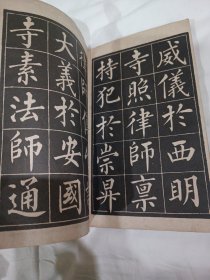 威儀於西明
寺照律師禀
持犯於崇昇
大義於安國
寺素法師通